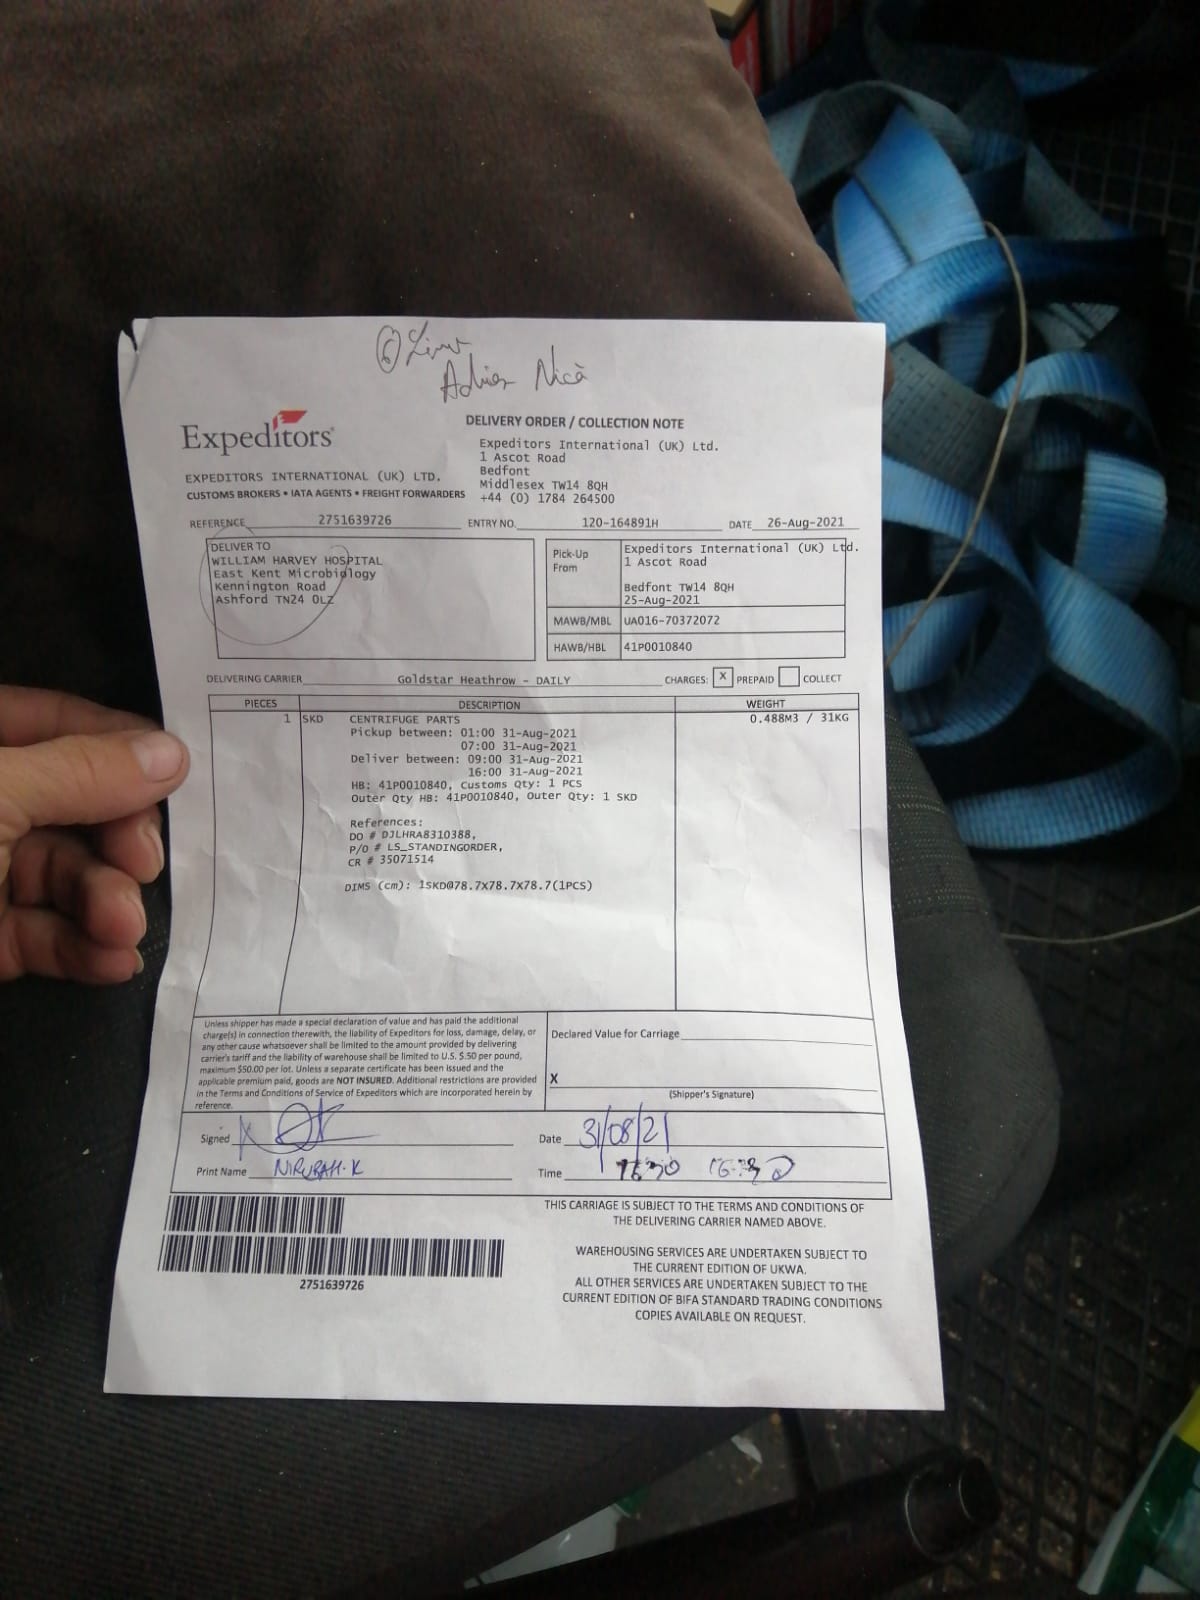 Adrian Nică
Expeditors
DELIVERY ORDER / COLLECTION NOTE
Expeditors International (UK) Ltd.
1 Ascot Road
Bedfont
Middlesex TW14 8QH
+44 (0) 1784 264500
EXPEDITORS INTERNATIONAL (UK) LTD.
CUSTOMS BROKERS • IATA AGENTS • FREIGHT FORWARDERS
REFERENCE 2751639726 ENTRY NO. 120-164891H DATE 26-Aug-2021
DELIVER TO
WILLIAM HARVEY HOSPITAL
East Kent Microbiology
Kennington Road
Ashford TN24 0LZ
Pick-Up From
Expeditors International (UK) Ltd.
1 Ascot Road
Bedfont TW14 8QH
25-Aug-2021
MAWB/MBL UA016-70372072
HAWB/HBL 41P0010840
DELIVERING CARRIER Goldstar Heathrow - DAILY CHARGES: X PREPAID COLLECT
PIECES DESCRIPTION WEIGHT
1 SKD CENTRIFUGE PARTS 0.488M3 / 31KG
Pickup between: 01:00 31-Aug-2021
07:00 31-Aug-2021
Deliver between: 09:00 31-Aug-2021
16:00 31-Aug-2021
HB: 41P0010840, Customs Qty: 1 PCS
Outer Qty HB: 41P0010840, Outer Qty: 1 SKD
References:
DO # DJLHRA8310388,
P/O # LS_STANDINGORDER,
CR # 35071514
DIMS (cm): 1SKD@78.7X78.7X78.7(1PCS)
Unless shipper has made a special declaration of value and has paid the additional
charge(s) in connection therewith, the liability of Expeditors for loss, damage, delay, or
any other cause whatsoever shall be limited to the amount provided by delivering
carrier's tariff and the liability of warehouse shall be limited to U.S. $.50 per pound,
maximum $50.00 per lot. Unless a separate certificate has been issued and the
applicable premium paid, goods are NOT INSURED. Additional restrictions are provided
in the Terms and Conditions of Service of Expeditors which are incorporated herein by
reference.
Declared Value for Carriage
X
(Shipper's Signature)
Signed
Date 31/08/21
Print Name
Time 16:30
THIS CARRIAGE IS SUBJECT TO THE TERMS AND CONDITIONS OF
THE DELIVERING CARRIER NAMED ABOVE.
WAREHOUSING SERVICES ARE UNDERTAKEN SUBJECT TO
THE CURRENT EDITION OF UKWA.
ALL OTHER SERVICES ARE UNDERTAKEN SUBJECT TO THE
CURRENT EDITION OF BIFA STANDARD TRADING CONDITIONS
COPIES AVAILABLE ON REQUEST.
2751639726